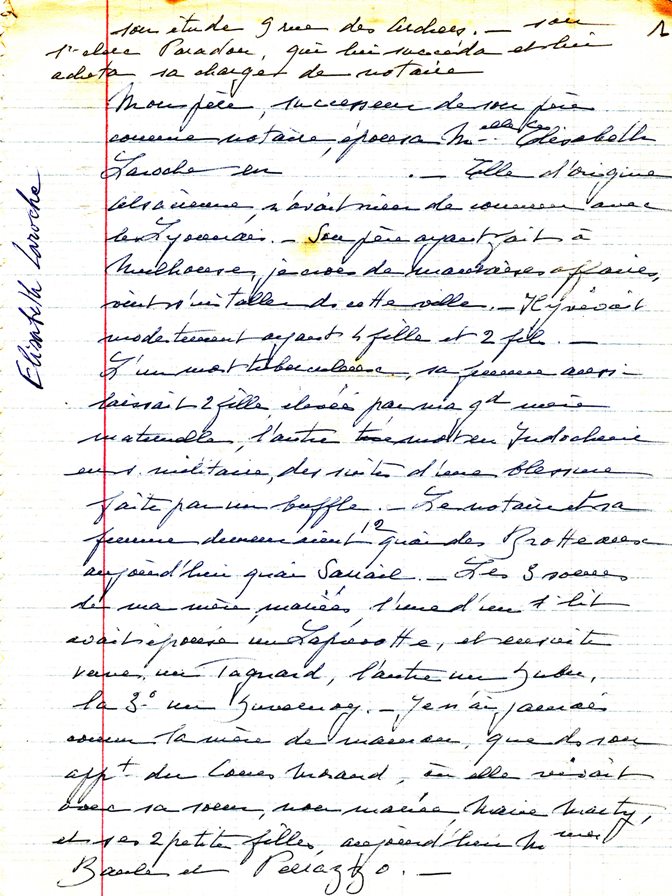 son étude 9 rue des Archers. — son
1er clerc Paradon, qui lui succéda et lui
acheta sa charge de notaire
Mon père, successeur de son père
comme notaire, épousa Melle Elisabeth
Laroche en . — Elle d'origine
alsacienne, n'avait rien de commun avec
les Lyonnais. — Son père ayant fait à
Mulhouse, je crois de mauvaises affaires,
vint s'installer ds cette ville. — Il y vivait
modestement ayant 4 fille et 2 fils. —
L'un mort tuberculeux, sa femme aussi
laissait 2 fille, élevées par ma gd mère
maternelle, l'autre mort en Indochine
en s. militaire, des suites d'une blessure
faite par un buffle. — Le notaire et sa
femme demeuraient 12 quai des Brotteaux
aujourd'hui quai Sarrail — Les 3 soeurs
de ma mère, mariées, l'une d'un 1er lit
avait épousé un Lapirotte, et ensuite
veuve, un Tagnard, l'autre un
la 3e un — Je n'ai jamais
connu la mère de maman, que ds son
appt du Cours Morand, où elle vivait
avec sa soeur, non mariée, Marie Marty,
et ses 2 petites filles, aujourd'hui Mmes
et Perazzo. —
Elisabeth Laroche